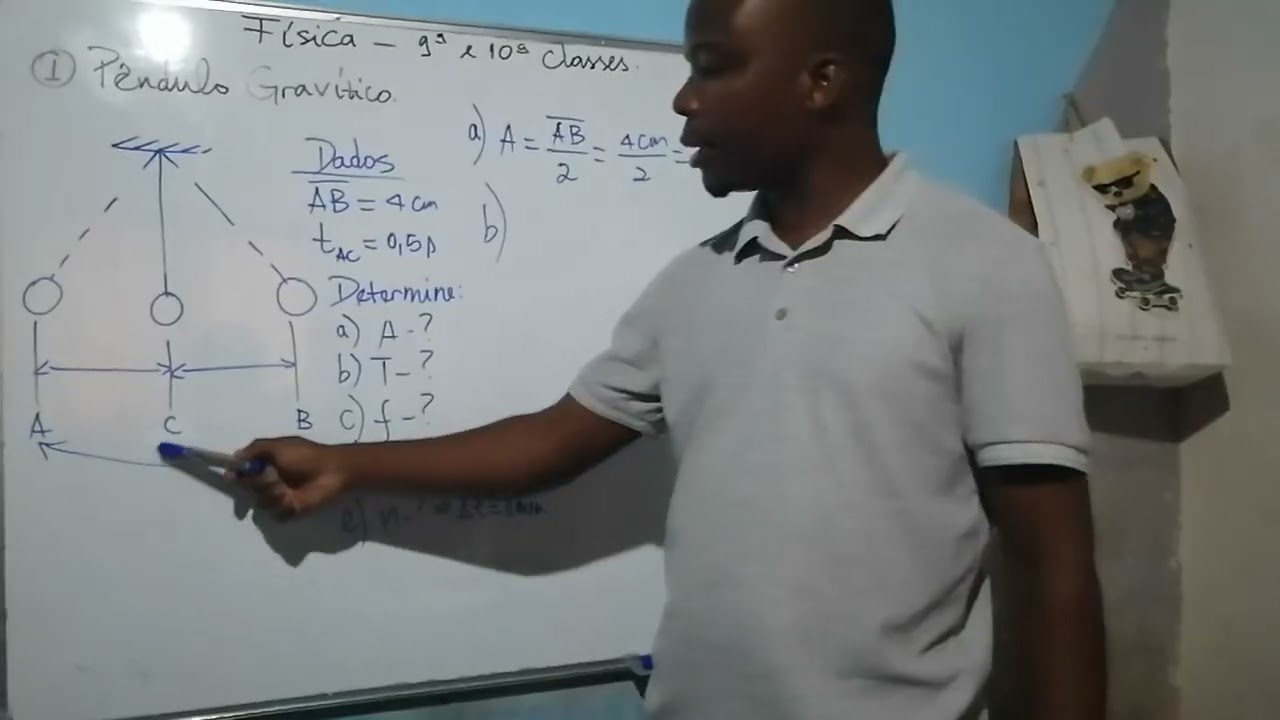 Física - 9ª e 10ª Classes.
① Pêndulo Gravítico.
Dados
AB = 4 cm
t AC = 0,5s
Determine:
a) A - ?
b) T - ?
c) f - ?
e) n - ?
A C B
a) A = AB/2 = 4cm/2 =
b)